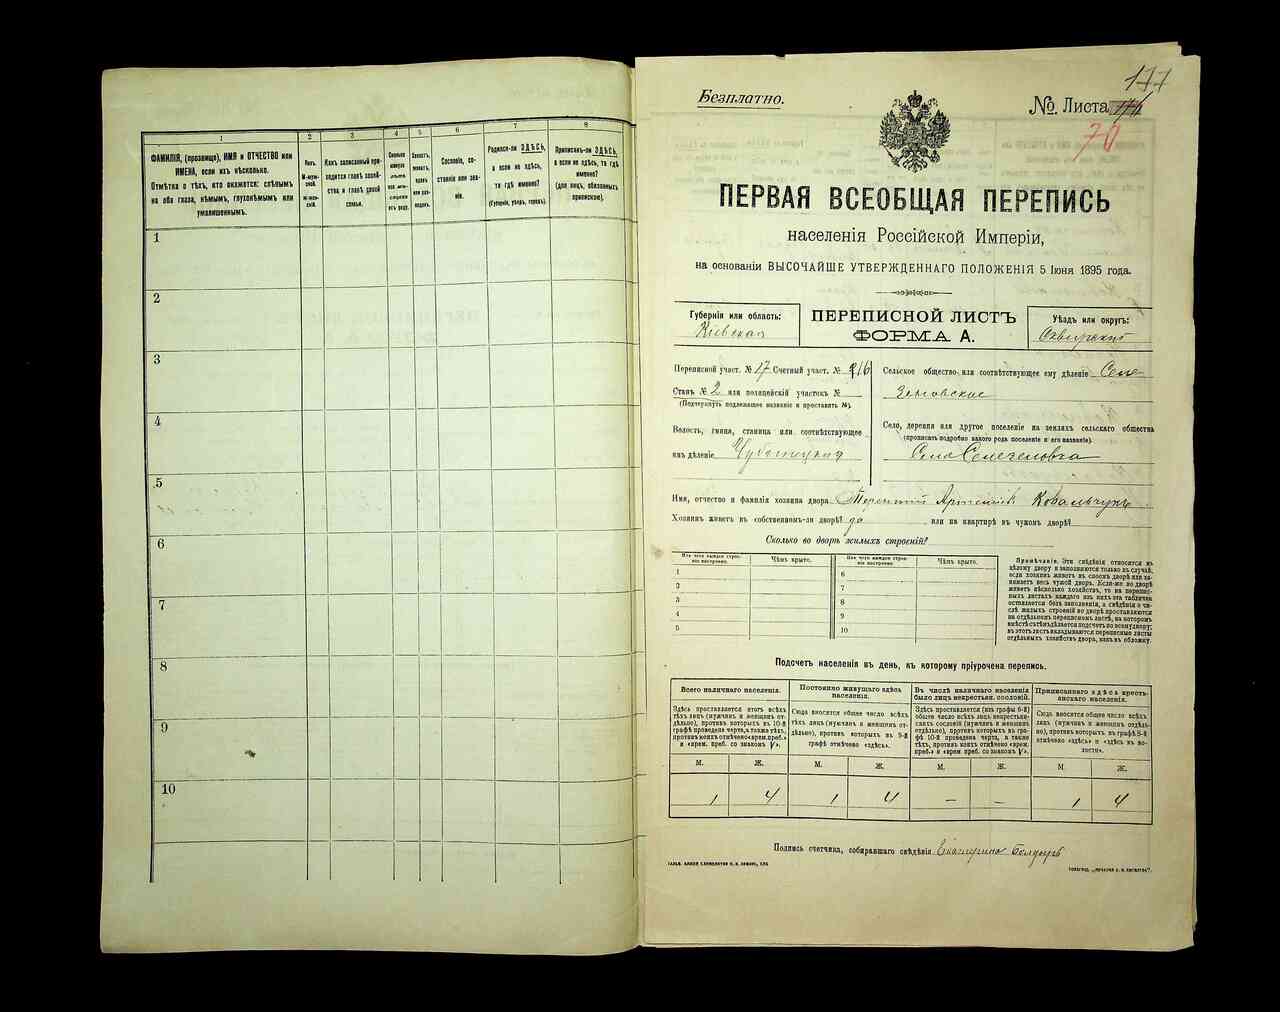 1
2
3
4
5
6
7
8
ФАМИЛІЯ, (прозвище), ИМЯ и ОТЧЕСТВО или
ИМЕНА, если ихъ нѣсколько.
Отмѣтка о тѣхъ, кто окажется: слѣпымъ
на оба глаза, нѣмымъ, глухонѣмымъ или
умалишеннымъ.
Полъ.
М-мужской.
Ж-женскій.
Какъ записанный приходится
главѣ хозяйства
и главѣ своей
семьи.
Сколько
минуло
лѣтъ
или мѣсяцевъ
отъ роду.
Холостъ,
женатъ,
вдовъ
или разведенъ.
Сословіе, состояніе
или званіе.
Родился-ли ЗДѢСЬ,
а если не здѣсь,
то гдѣ именно?
(Губернія, уѣздъ, городъ).
Приписанъ-ли ЗДѢСЬ,
а если не здѣсь, то гдѣ
именно?
(для лицъ, обязанныхъ
припискою).
1
2
3
4
5
6
7
8
9
10
177
Безплатно.
№ Листа
70
ПЕРВАЯ ВСЕОБЩАЯ ПЕРЕПИСЬ
населенія Россійской Имперіи,
на основаніи ВЫСОЧАЙШЕ УТВЕРЖДЕННАГО ПОЛОЖЕНІЯ 5 Іюня 1895 года.
Губернія или область:
Кіевская
ПЕРЕПИСНОЙ ЛИСТЪ
ФОРМА А.
Уѣздъ или округъ:
Сквирскій
Переписной участ. № 17 Счетный участ. № 216
Станъ № 2 или полицейскій участокъ №
(Подчеркнуть подлежащее названіе и проставить №).
Волость, гмина, станица или соотвѣтствующее
имъ дѣленіе
Сельское общество или соотвѣтствующее ему дѣленіе
Село, деревня или другое поселеніе на земляхъ сельскаго общества
(прописать подробно какого рода поселеніе и его названіе).
Село
Имя, отчество и фамилія хозяина двора Терентій Артемій Ковальчукъ
Хозяинъ живетъ въ собственномъ-ли дворѣ? да или на квартирѣ въ чужомъ дворѣ?
Сколько во дворѣ жилыхъ строеній?
Изъ чего каждое строеніе построено.
Чѣмъ крыто.
Изъ чего каждое строеніе построено.
Чѣмъ крыто.
1
2
3
4
5
6
7
8
9
10
Примѣчаніе. Эти свѣдѣнія относятся къ
цѣлому двору и заполняются только въ случаѣ,
если хозяинъ живетъ въ своемъ дворѣ или занимаетъ
весь чужой дворъ. Если-же во дворѣ
живетъ нѣсколько хозяйствъ, то на переписныхъ
листахъ каждаго изъ нихъ эта табличка
оставляется безъ заполненія, а свѣдѣнія о числѣ
жилыхъ строеній во дворѣ проставляются
на отдѣльномъ переписномъ листѣ, на которомъ
вмѣстѣ съ тѣмъ дѣлается подсчетъ по всему двору;
въ этотъ листъ вкладываются переписные листы
отдѣльныхъ хозяйствъ двора, какъ въ обложку.
Подсчетъ населенія въ день, къ которому пріурочена перепись.
Всего наличнаго населенія.
Постоянно живущаго здѣсь
населенія.
Въ числѣ наличнаго населенія
было лицъ некрестьян. сословій.
Приписаннаго здѣсь крестьянскаго
населенія.
Здѣсь проставляется итогъ всѣхъ
тѣхъ лицъ (мужчинъ и женщинъ отдѣльно),
противъ которыхъ въ 10-й
графѣ проведена черта, а также тѣхъ,
противъ коихъ отмѣчено «врем. преб.»
и «врем. преб. со знакомъ V».
Сюда вносится общее число всѣхъ
тѣхъ лицъ (мужчинъ и женщинъ отдѣльно),
противъ которыхъ въ 9-й
графѣ отмѣчено «здѣсь».
Здѣсь проставляется (изъ графы 6-й)
общее число всѣхъ лицъ некрестьянскихъ
сословій (мужчинъ и женщинъ
отдѣльно), противъ которыхъ въ графѣ
10-й проведена черта, а также
тѣхъ, противъ коихъ отмѣчено «врем.
преб.» и «врем. преб. со знакомъ V».
Сюда вносится общее число всѣхъ
лицъ (мужчинъ и женщинъ отдѣльно),
противъ которыхъ въ графѣ 8-й
отмѣчено «здѣсь» и «здѣсь въ волости».
М. Ж. М. Ж. М. Ж. М. Ж.
1 4 1 4 – – 1 4
Подпись счетчика, собиравшаго свѣдѣнія